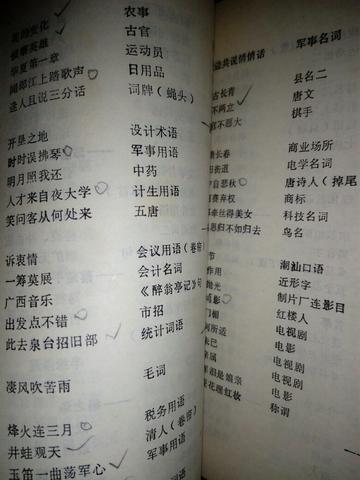 的变化 农事
侦察英雄 古官
华夏第一章 运动员
闽江上踏歌声 日用品
逢人且说三分话 词牌（蝇头）
开垦之地 设计术语
时时误拂琴 军事用语
明月照我还 中药
人才来自夜大学 计生用语
笑问客从何处来 五唐
诉衷情 会议用语（卷帘）
一筹莫展 会计名词
广西音乐 《醉翁亭记》句
出发点不错 市招
此去泉台招旧部 统计词语
凄风吹苦雨 毛词
烽火连三月 税务用语
井蛙观天 清人（卷帘）
玉笛一曲荡军心 军事用语
共说悄悄话 军事名词
古长青 县名二
不两立 唐文
官不恶大 棋手
长春 商业场所
街道 电学名词
自悲秋 唐诗人（掉尾
赛弃权 商标
牵丝得美女 科技名词
思归不如归去 鸟名
节 潮汕口语
作用 近形字
抛光 制片厂连影目
鸿影 红楼人
门楣 电视剧
何所适 电影
未已 电视剧
亲属 电视剧
相是娘亲 电影
花殖红妆 称谓